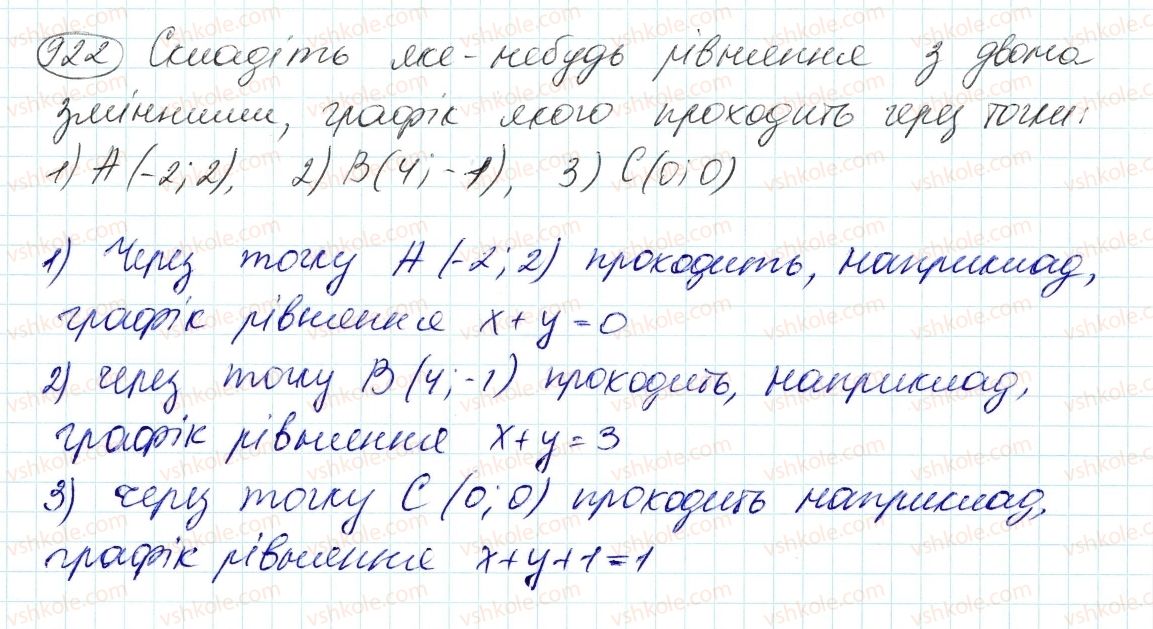 922 Складіть яке-небудь рівняння з двома
змінними, графік якого проходить через точки:
1) A (-2; 2), 2) B (4; -1), 3) C (0; 0)
1) Через точку A (-2; 2) проходить, наприклад,
графік рівняння x + y = 0
2) через точку B (4; -1) проходить, наприклад,
графік рівняння x + y = 3
3) через точку C (0; 0) проходить наприклад,
графік рівняння x + y + 1 = 1